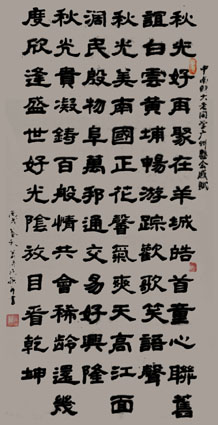 老同学广州聚会感赋
秋光好再聚在羊城皓首童心聯舊
誼白雲黄埔暢游踪歡歌笑語聲
秋光美南國正花馨氣爽天高江面
濶民殷物阜萬邦通交易好興隆
秋光貴凝鑄百般情共會稀齡還幾
度欣逢盛世好光陰放目看乾坤